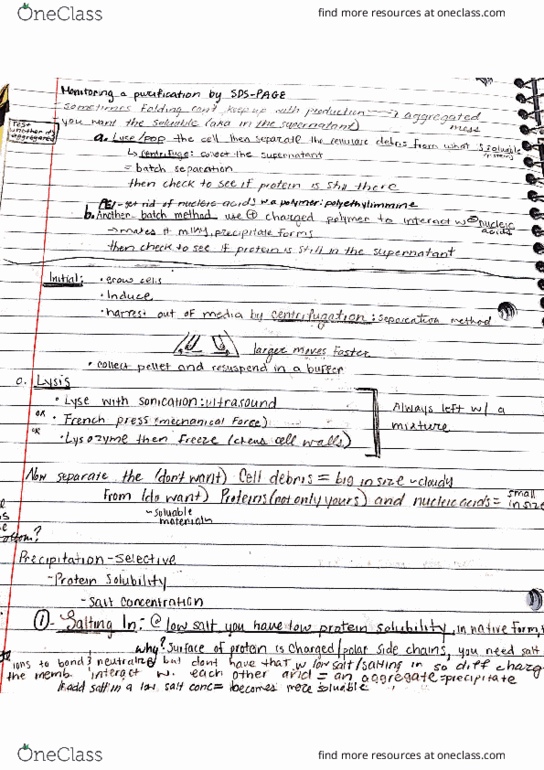 OneClass
find more resources at oneclass.com
Monitoring a purification by SDS-PAGE
sometimes folding can't keep up with production → aggregated
mess
Test whether it's aggregated
you want the soluble (aka in the supernatant)
a. Lyse/pop the cell then separate the cellular debris from what is soluble
↳ centrifuge: collect the supernatant
= batch separation
then check to see if protein is still there
PEI - get rid of nucleic acids w a polymer: polyethylimmine
b. Another batch method use ⊕ charged polymer to interact w ⊖ nucleic acids
→ makes it milky, precipitate forms
then check to see if protein is still in the supernatant
Initial: • Grow cells
• Induce
• harvest out of media by centrifugation: separation method
larger moves faster
• collect pellet and resuspend in a buffer
0. Lysis
• Lyse with sonication: ultrasound
or • French press (mechanical force)
or • Lysozyme then freeze (chews cell walls)
Always left w/ a
mixture
Now separate the (don't want) Cell debris = big in size ~ cloudy
From (do want) Proteins (not only yours) and nucleic acids = small in size
~ soluable
material
ottom?
Precipitation - Selective
- Protein Solubility
- Salt Concentration
① - Salting In: @ low salt you have low protein solubility, in native form,
why? Surface of protein is charged/polar side chains, you need salt
ions to bond & neutralize but dont have that w low salt/salting in so diff charg
the memb. interact w. each other and = an aggregate = precipitate
add salt in a low salt conc = becomes more soluble
OneClass
find more resources at oneclass.com